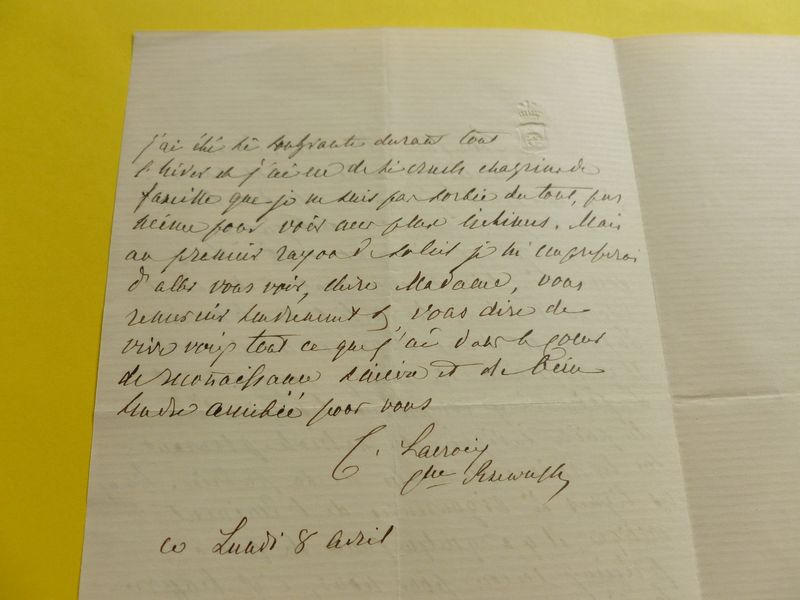 j'ai été si souffrante durant tout
l'hiver et j'ai eu de si cruels chagrins de
famille que je ne suis pas sortie du tout, pas
même pour voir mes plus intimes. Mais
au premier rayon de soleil je m'empresserai
d'aller vous voir, chère Madame, vous
remercier tendrement &, vous dire de
vive voix tout ce que j'ai dans le coeur
de reconnaissance sincère et de bien
tendre amitié pour vous
C. Lacroix
née Rzewuska
ce Lundi 8 avril